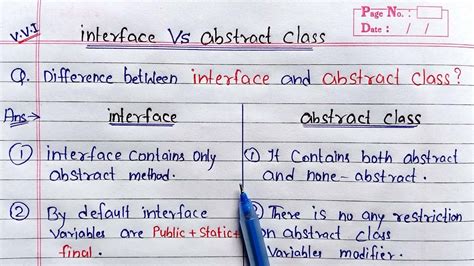 V.V.I
interface Vs abstract class
Page No. :
Date : / /
Q. Difference between interface and abstract class?
Ans→
interface
abstract class
① interface contains only
abstract method.
② By default interface
Variables are Public + Static +
final.
① It Contains both abstract
and none-abstract.
② There is no any restriction
on abstract class
Variables modifier.